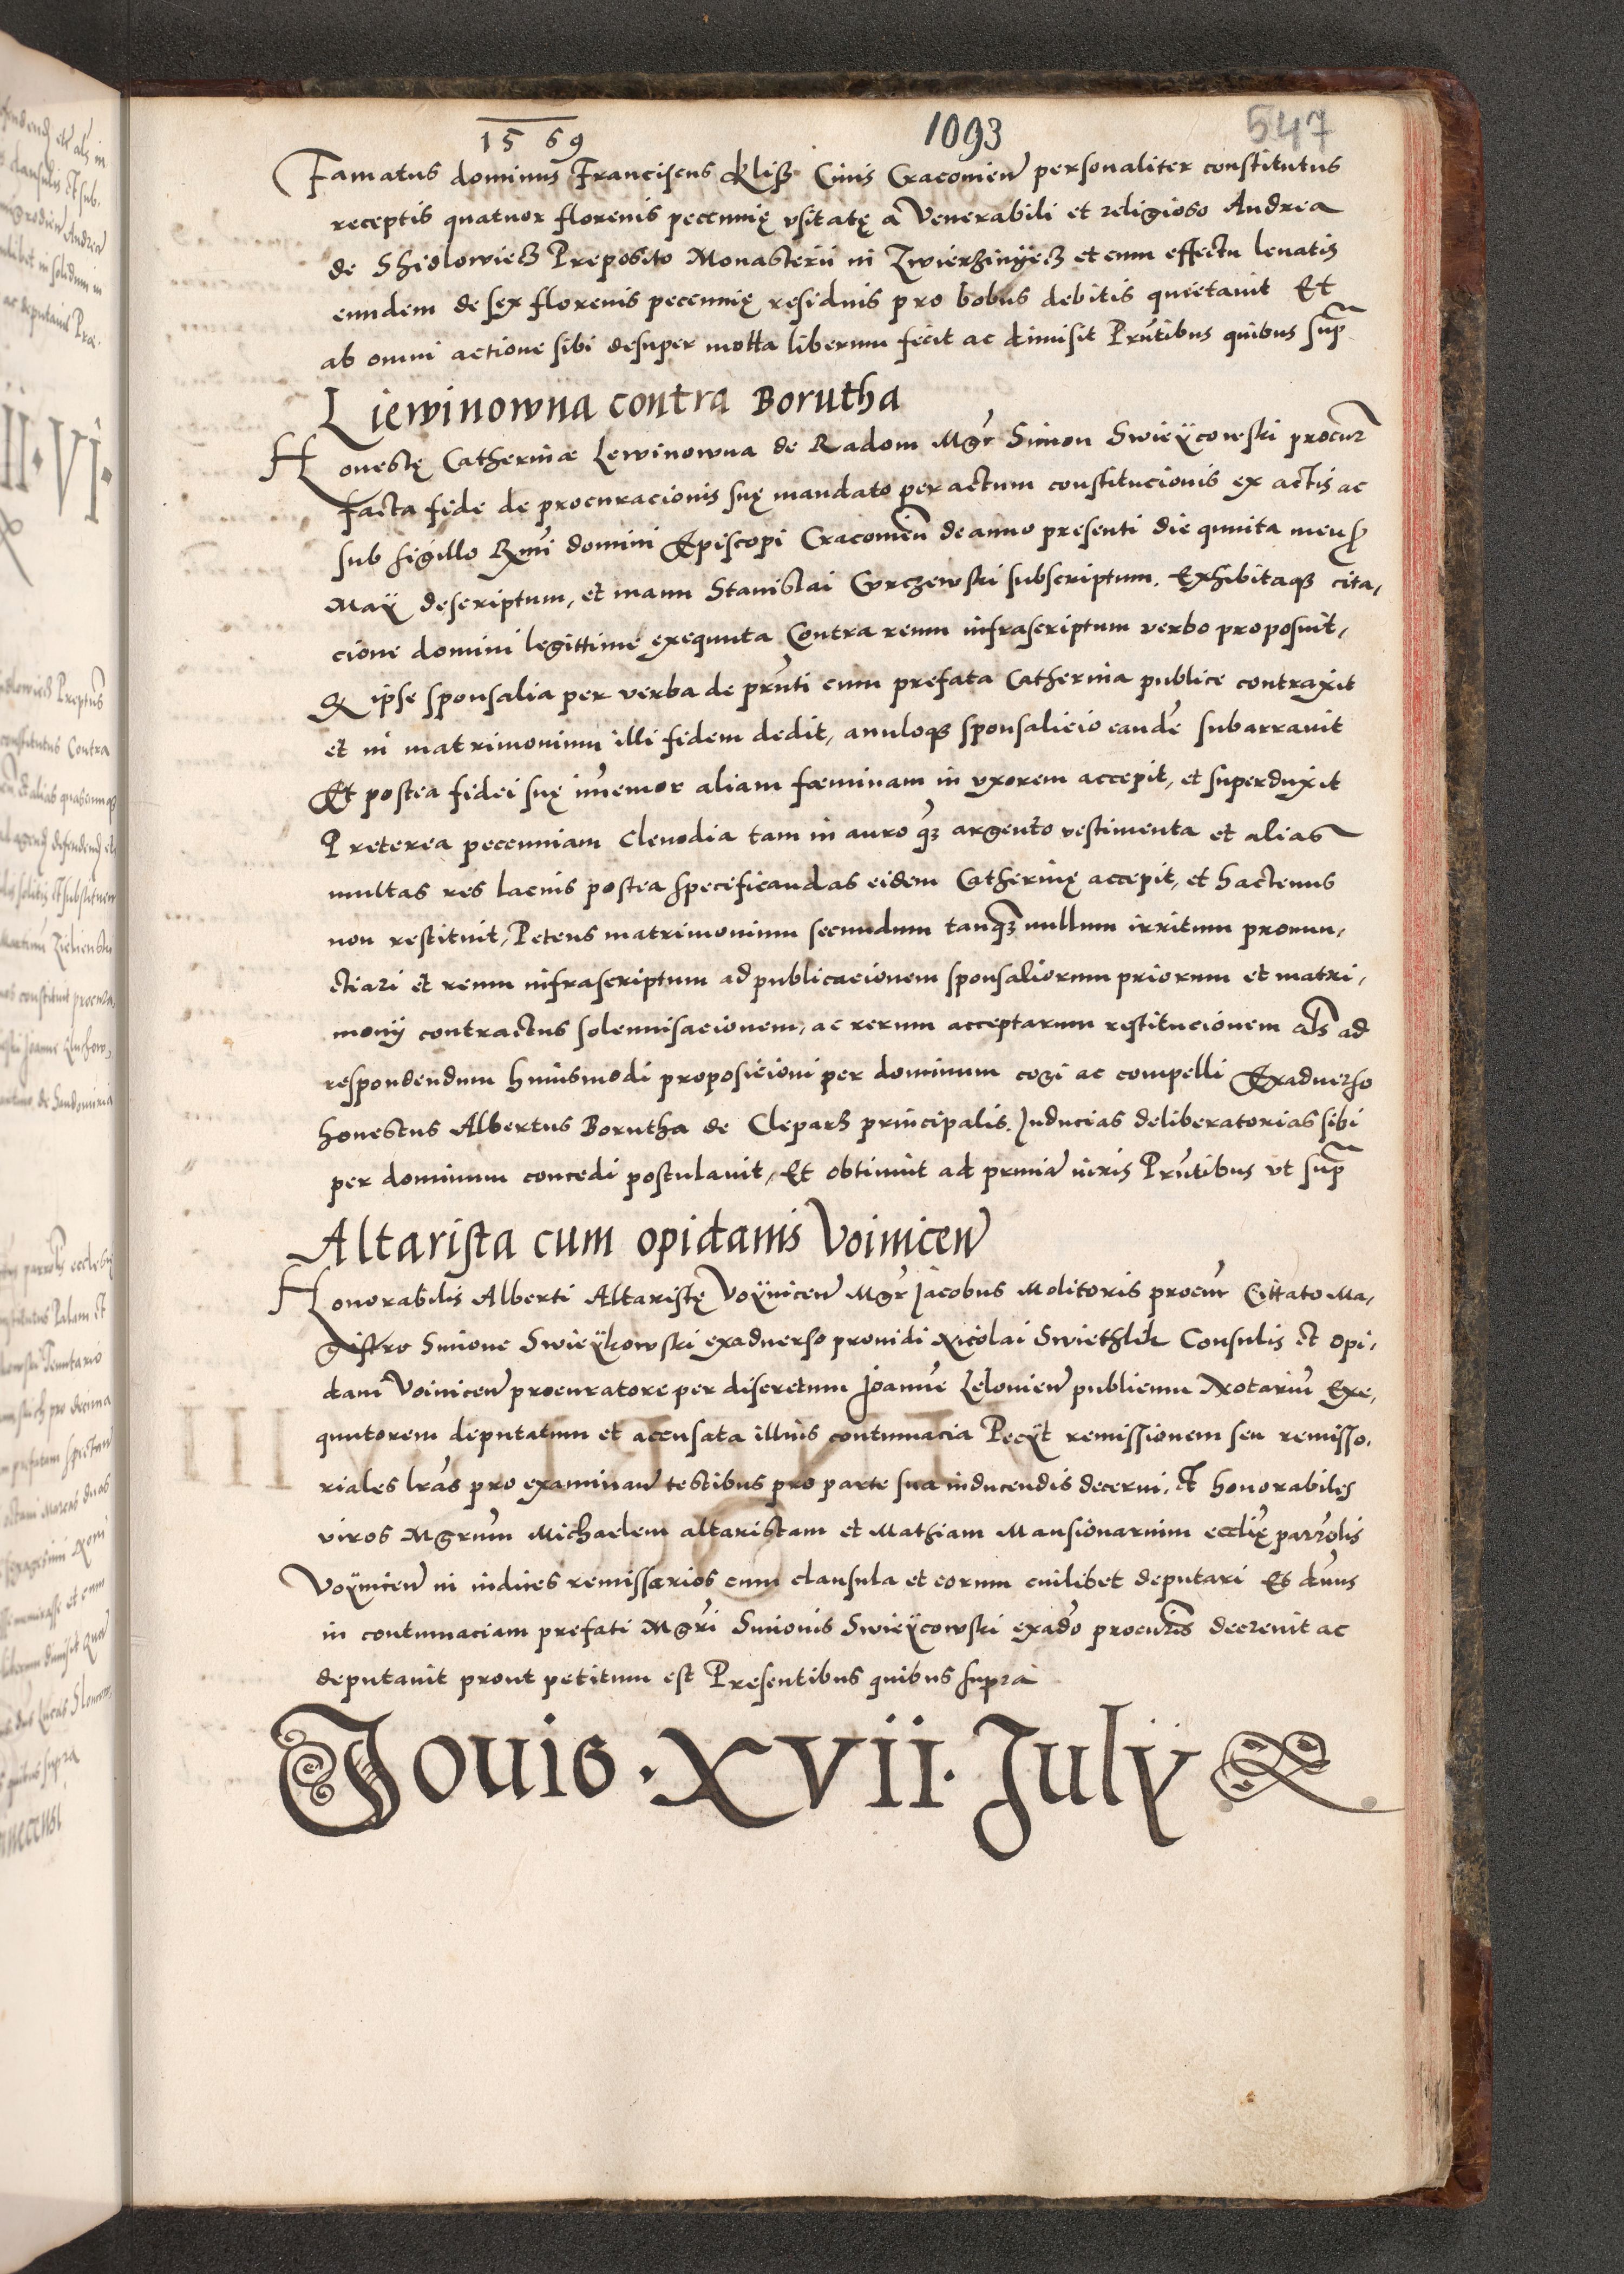 1569 1093 547
Famatus dominus Franciscus Klisz Ciuis Cracouien personaliter constitutus
receptis quatuor florenis pecunię vsitatę a Venerabili et religioso Andrea
de Shidlowiecz Preposito Monasterii in Zwierzinÿecz et cum effectu leuatis
eundem de sex florenis pecunię residuis pro bobus debitis quietauit Et
ab omni actione sibi desuper motta liberum fecit ac dimisit Pntibus quibus supra
Liewinowna contra Borutha
Honestę Catherinæ Lewinowna de Radom Mgr Simon Swieÿcowski procur
facta fide de procuracionis suę mandato per actum constitucionis ex actis ac
sub sigillo Rmi domini Episcopi Cracouien de anno presenti die quinta mens
Maÿ descriptum, et manu Stanislai Gorczewski subscriptum. Exhibitaqz cita,
cione domini legittime exequuta Contra reum infrascriptum verbo proposuit,
Q ipse sponsalia per verba de pnti cum prefata Catherina publice contraxit
et in matrimonium illi fidem dedit, anuloqz sponsalicio eande subarrauit
Et postea fidei suę immemor aliam fœminam in vxorem accepit, et superduxit
Preterea pecuniam Clenodia tam in auro qz argento vestimenta et alias
multas res lacius postea specificandas eidem Catherinę accepit, et hactenus
non restituit, Petens matrimonium secundum tanqz nullum irritum pronun,
ctiari et reum infrascriptum ad publicacionem sponsaliorum priorum et matri,
monÿ contractus solennisacionem, ac rerum acceptarum restitucionem als ad
respondendum huiusmodi proposicioni per dominum cogi ac compelli Exaduerso
honestus Albertus Borutha de Cleparz principalis. Inducias deliberatorias sibi
per dominum concedi postulauit, Et obtinuit ad primã iuris Pntibus vt supra
Altarista cum opidanis Voinicen
Honorabilis Alberti Altaristę Voÿnicen Mgr Jacobus Molitoris procur Cittato Ma,
gistro Simone Swieÿkowski exaduerso prouidi Nicolai Swiethlik Consulis et opi,
dani Voinicen procuratore per discretum Joanne Lelouien publicum Notariu Exe,
quutorem deputatum et accusata illius contumacia Peciÿt remissionem seu remisso,
riales lras pro examinan testibus pro parte sua inducendis decerni, Et honorabiles
viros Mgrum Michaelem altaristam et Mathiam Mansionarium ecclię parrolis
Voÿnicen in iudices remissarios cum clausula et eorum cuilibet deputari Et dnus
in contumaciam prefati Mgri Simonis Swieÿcowski exado procuris decreuit ac
deputauit prout petitum est Presentibus quibus supra
Jouis · XVII · Julÿ